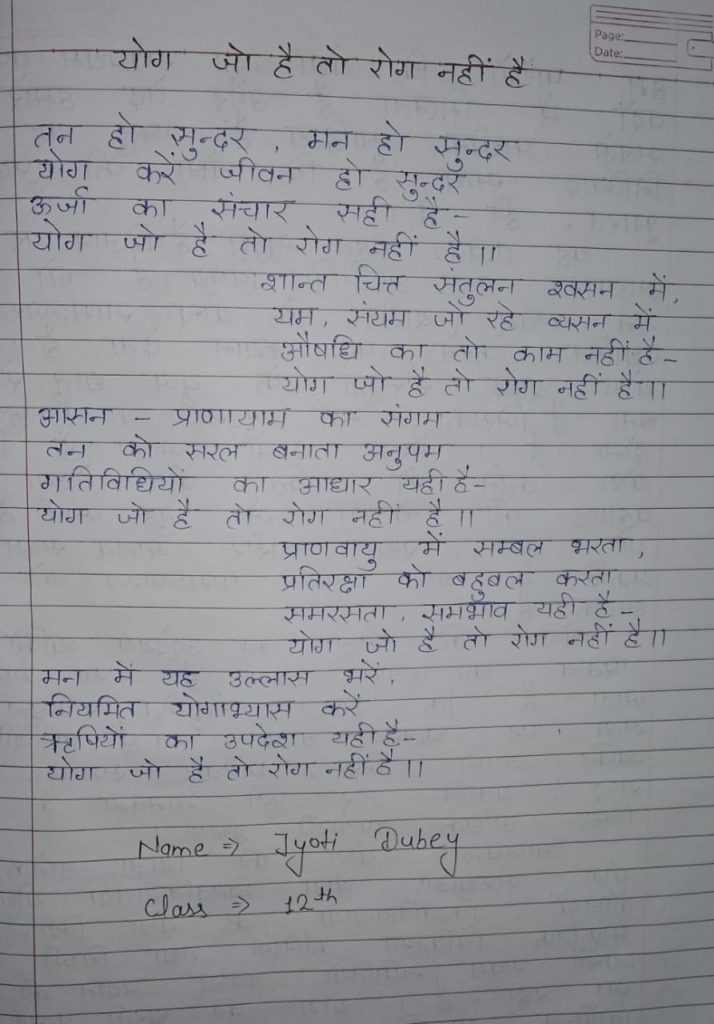 Page:
Date:
योग जो है तो रोग नहीं है
तन हो सुन्दर, मन हो सुन्दर
योग करें जीवन हो सुन्दर
ऊर्जा का संचार सही है-
योग जो है तो रोग नहीं है।।
शान्त चित्त संतुलन श्वसन में,
यम, संयम जो रहे व्यसन में
औषधि का तो काम नहीं है-
योग जो है तो रोग नहीं है।।
आसन - प्राणायाम का संगम
तन को सरल बनाता अनुपम
गतिविधियों का आधार यही है-
योग जो है तो रोग नहीं है।।
प्राणवायु में सम्बल भरता,
प्रतिरक्षा को बहुबल करता
समरसता, समभाव यही है-
योग जो है तो रोग नहीं है।।
मन में यह उल्लास भरें,
नियमित योगाभ्यास करें
ऋषियों का उपदेश यही है-
योग जो है तो रोग नहीं है।।
Name => Jyoti Dubey
Class => 12th